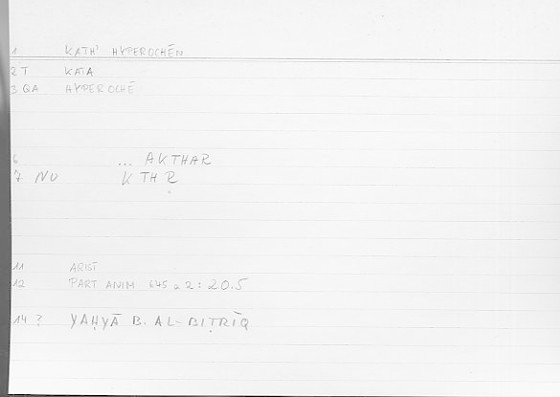 1 KATH' HYPEROCHĒN
2 T KATA
3 QA HYPEROCHĒ
6 ... AKTHAR
7 NU K TH R
11 ARIST
12 PART ANIM 645 a 2 : 20.5
14 ? YAḤYĀ B. AL-BIṬRĪQ